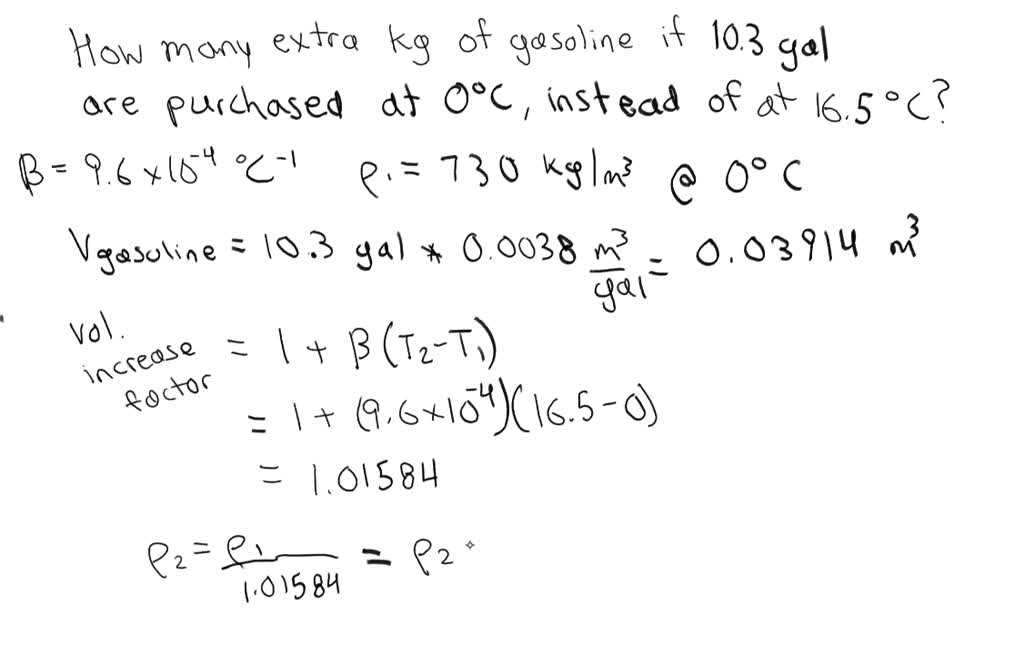 How many extra kg of gasoline if 10.3 gal
are purchased at 0°C, instead of at 16.5°C?
β = 9.6 × 10⁻⁴ °C⁻¹ ρ₁ = 730 kg/m³ @ 0°C
Vgasoline = 10.3 gal * 0.0038 m³/gal = 0.03914 m³
vol. increase factor = 1 + β(T₂-T₁)
= 1 + (9.6×10⁻⁴)(16.5-0)
= 1.01584
ρ₂ = ρ₁/1.01584 = ρ₂